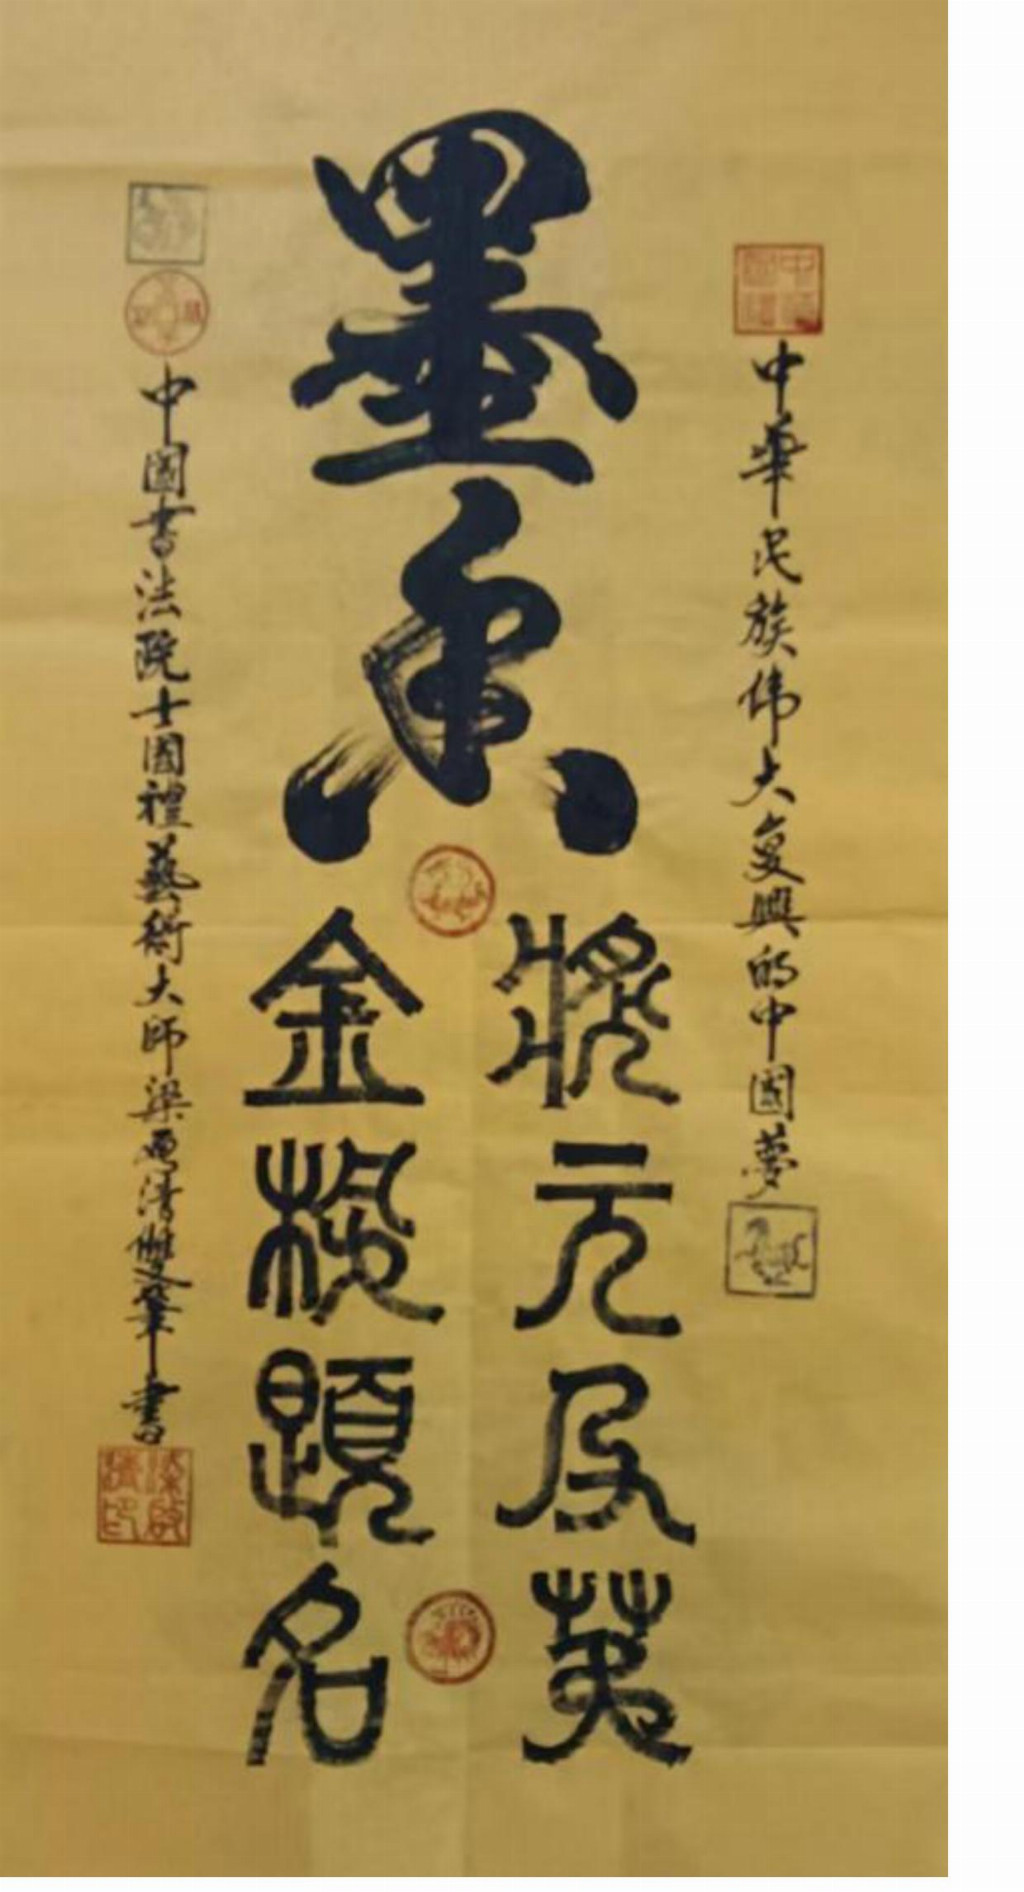 中華民族伟大复興的中國夢
墨香
狀元及第
金榜題名
中國書法院士國禮藝術大師梁啟清雙筆書